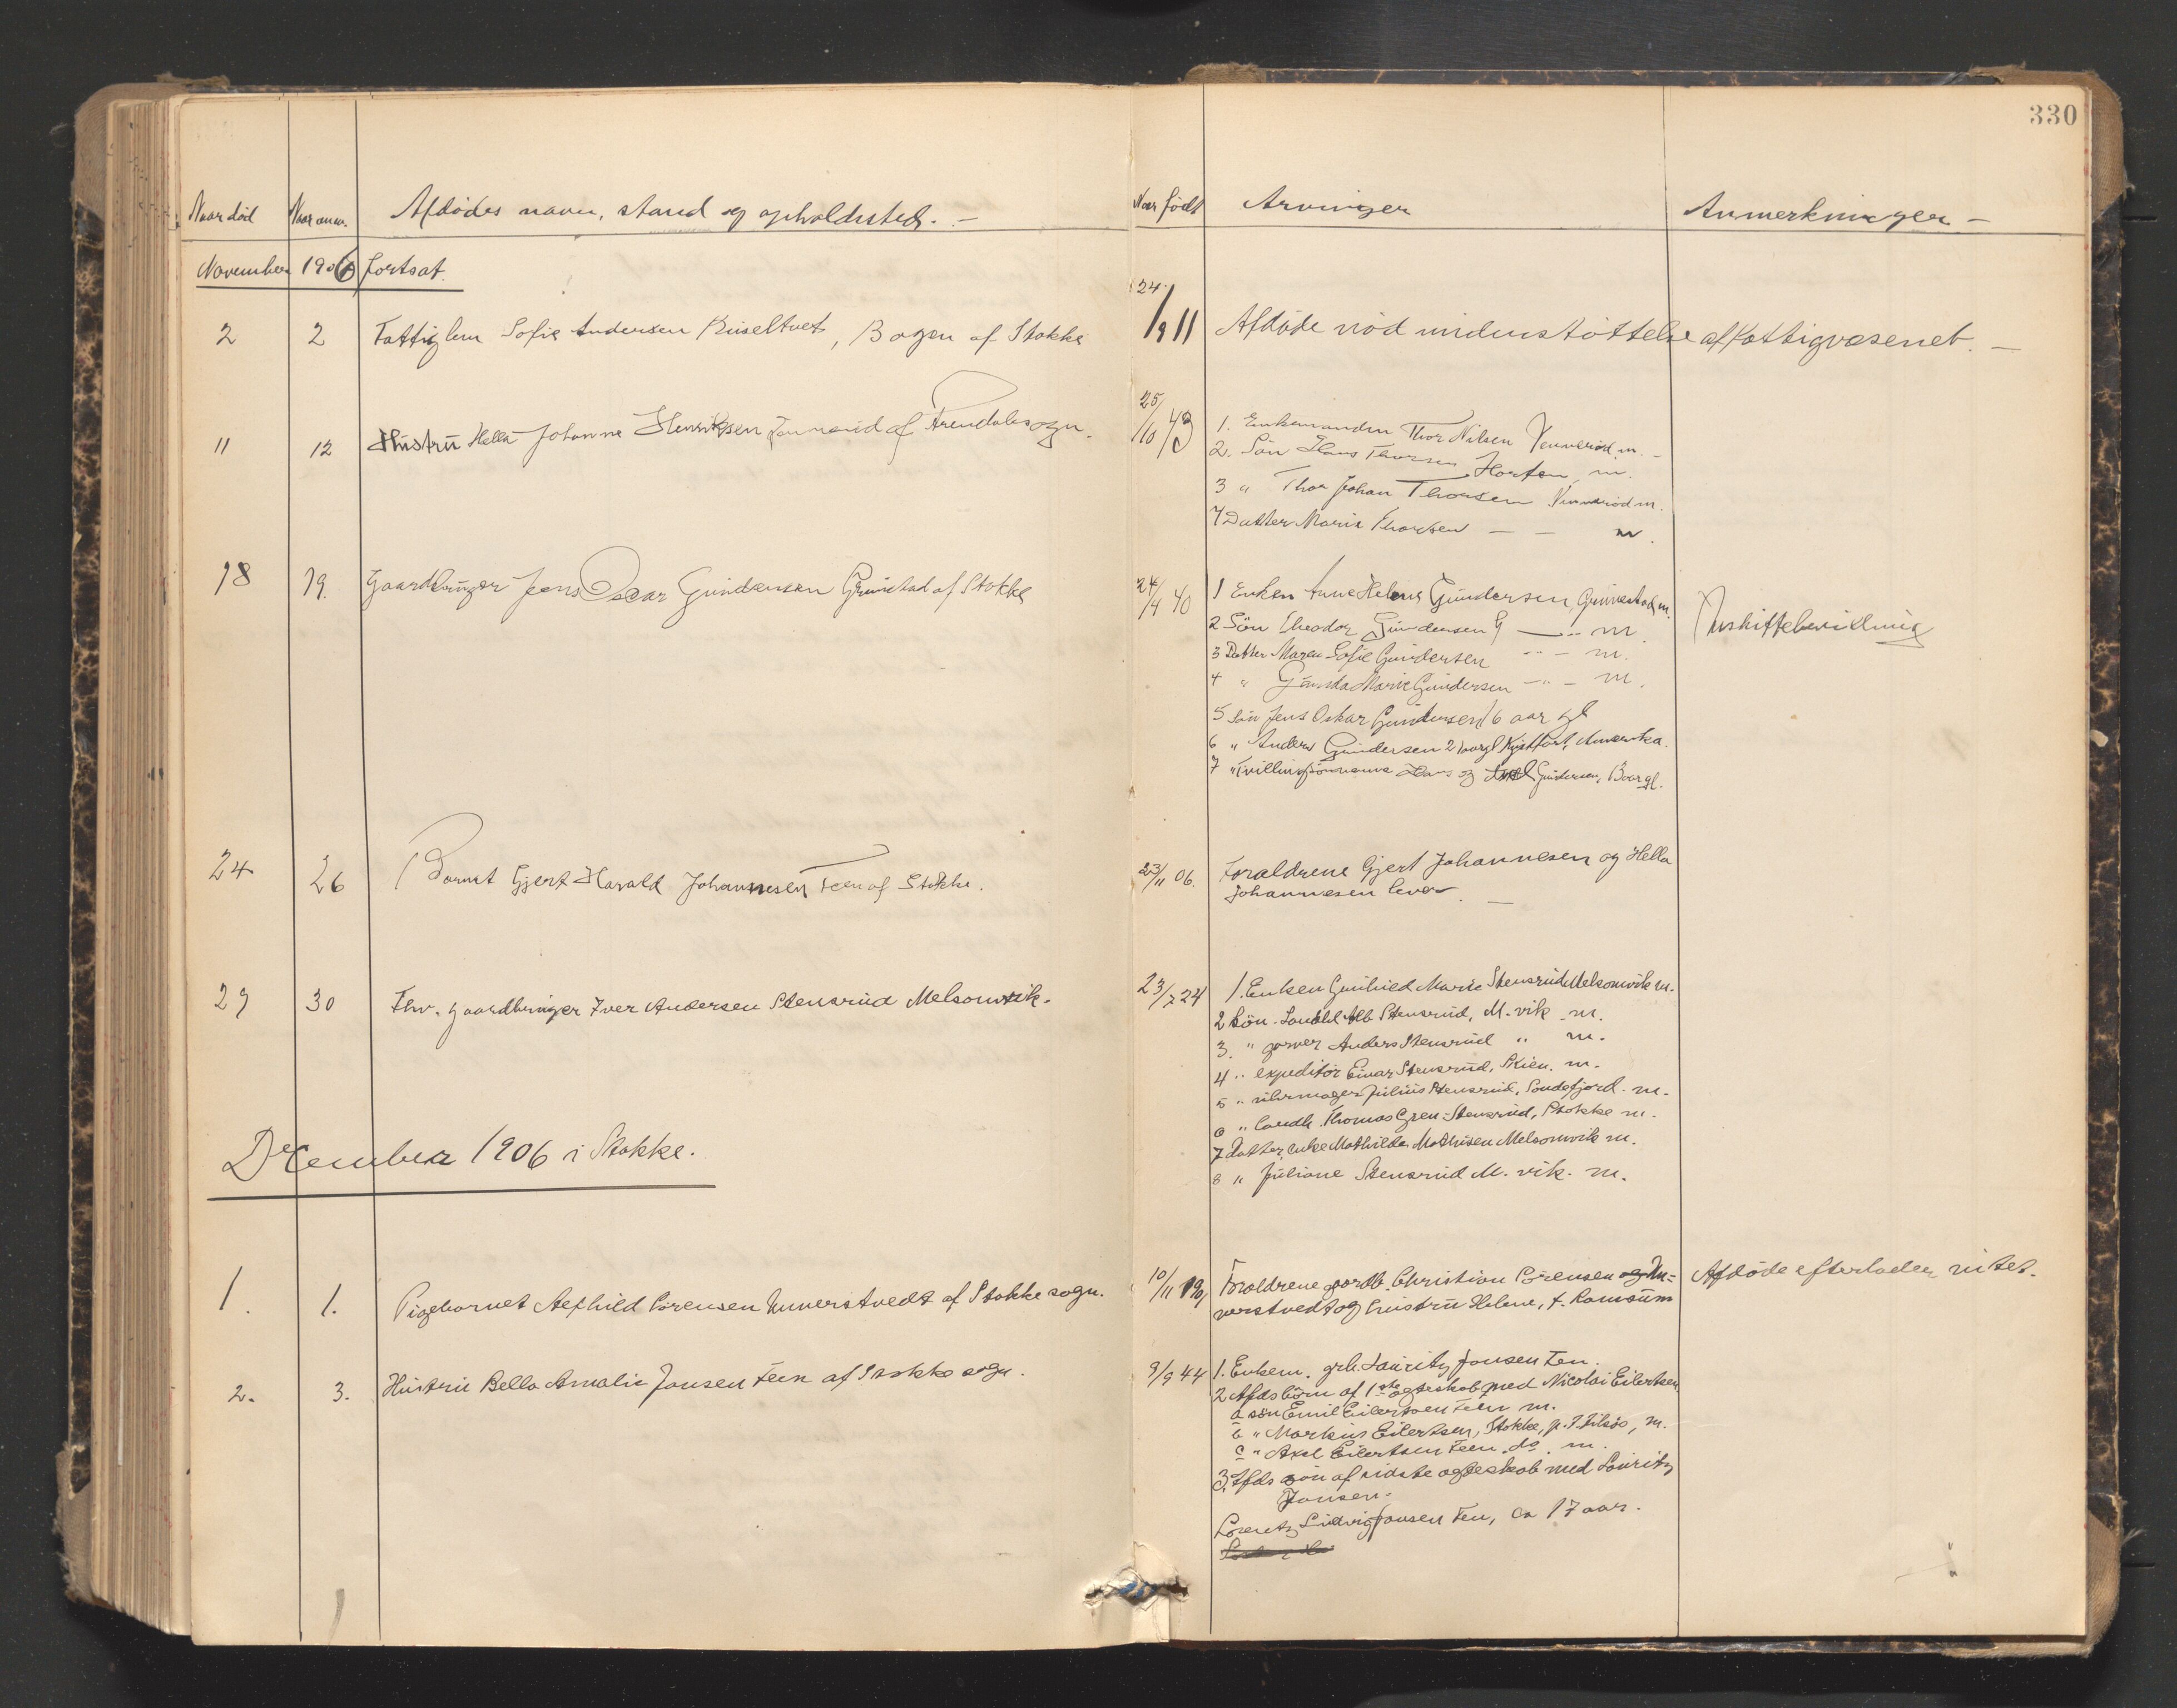 330
Naar død Naar anm. Afdødes navn, stand og opholdssted. — Naar født Arvinger Anmerkninger —
November 1906 fortsat.
2 2 Fattiglem Sofie Andersen, Bogen af Stokke 24/9 11 Afdøde nød understøttelse af fattigvæsenet. —
11 12 Hustru Hella Johanne Henriksen af Arendals sogn. 25/10 43
1. Enkemanden Thor Nilsen Vennerød m. —
2. Søn Hans Thorsen Horten m.
3 " Thor Johan Thorsen Vennerød m.
4 Datter Marie Thorsen — — m.
18 19. Gaardbruger Jens Oscar Gundersen Grimestad af Stokke 24/4 40
1 Enken Anne Helene Gundersen, Grimestad m.
2 Søn Theodor Gundersen G —"— m.
3 Datter Maren Sofie Gundersen —"— m.
4 " Gunda Marie Gundersen —"— m.
5 Søn Jens Oskar Gundersen 16 aar gl
6 " Anders Gundersen 21 aar gl Amerika.
7 " Tvillingsønnerne Hans og Axel Gundersen, 13 aar gl.
Uskiftebevilling
24 26 Barnet Gjert Harald Johannesen Feen af Stokke. 23/11 06. Forældrene Gjert Johannesen og Hella
Johannesen lever. —
27 30 Fhv. gaardbruger Iver Andersen Stensrud Melsomvik. 23/7 24
1. Enken Gunhild Marie Stensrud Melsomvik m.
2 Søn. Alb Stensrud, M.vik m.
3. " garver Anders Stensrud " m.
4 " expeditør Einar Stensrud, Skien. m.
5 " uhrmager Julius Stensrud, Sandefjord. m.
6 " landh. Thomas Gren-Stensrud, Stokke m.
7 Datter, enke Mathilde Mathisen Melsomvik m.
8 " Juliane Stensrud M.vik. m.
December 1906 i Stokke.
1. 1. Pigebarnet Alfhild Sørensen Unnerstvedt af Stokke sogn. 10/11 Forældrene gardb. Christian Sørensen og Un-
nerstvedt og hustru Helene, f. Ramsum
Afdøde efterlader intet.
2. 3. Hustru Bella Amalie Jansen Feen af Stokke sogn. 9/9 44
1. Enkem. grb. Lauritz Jansen Fen.
2 Afds børn af 1ste ægteskab med Nicolai Eilertsen
a søn Emil Eilertsen Feen m.
b " Markus Eilertsen, Stokke, m.
c " Axel Eilertsen Feen, do. m.
3. Afds søn af sidste ægteskab med Lauritz
Jansen.
Lorentz Ludvig Jansen Fen, ca 17 aar.